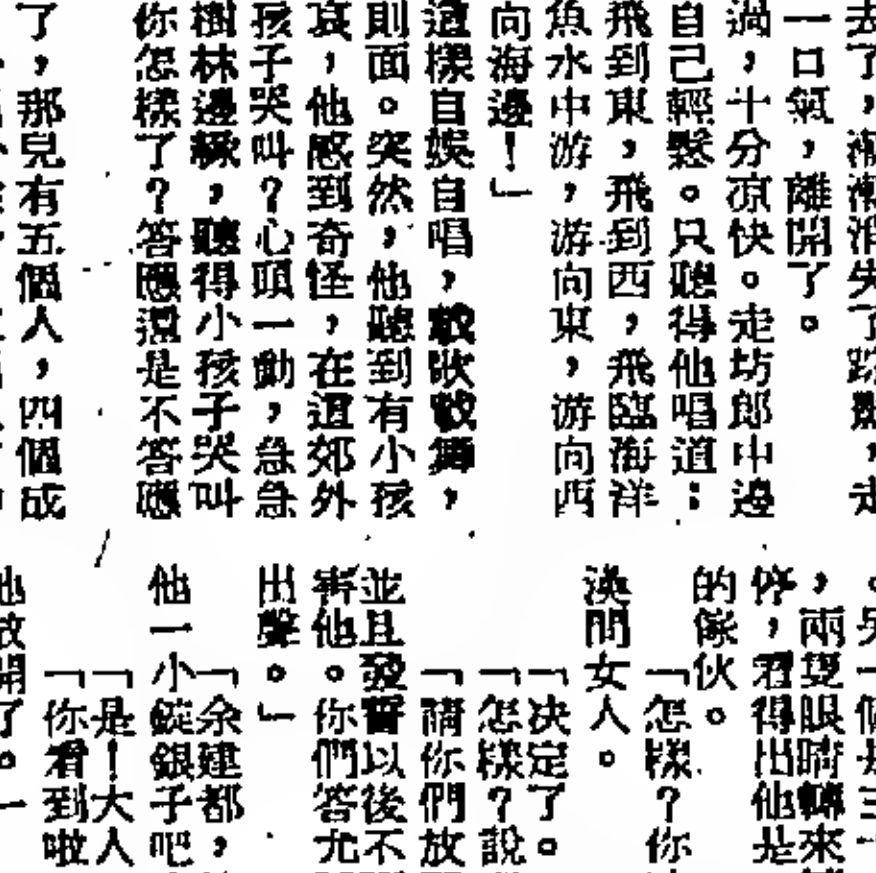 去了，漸漸消失了踪影，走
一口氣，離開了。
過，十分凉快。走坊郎中邊
自己輕鬆。只聽得他唱道：
飛到東，飛到西，飛臨海洋
魚水中游，游向東，游向西
向海邊！」
這樣自娛自唱，載歌載舞，
則面。突然，他聽到有小孩
哀，他感到奇怪，在這郊外
孩子哭叫？心頭一動，急急
樹林邊緣，聽得小孩子哭叫
你怎樣了？答應還是不答應
了，那兒有五個人，四個成
。另一個是三
，兩隻眼睛轉來
停，看得出他是
的傢伙。
「怎樣？你
漢問女人。
「决定了。
「怎樣？說
「請你們放
並且發誓以後不
害他。你們答允
出聲。」
「余建都，
他一小錠銀子吧
「是！大人
「你看到啦
他放開了。一